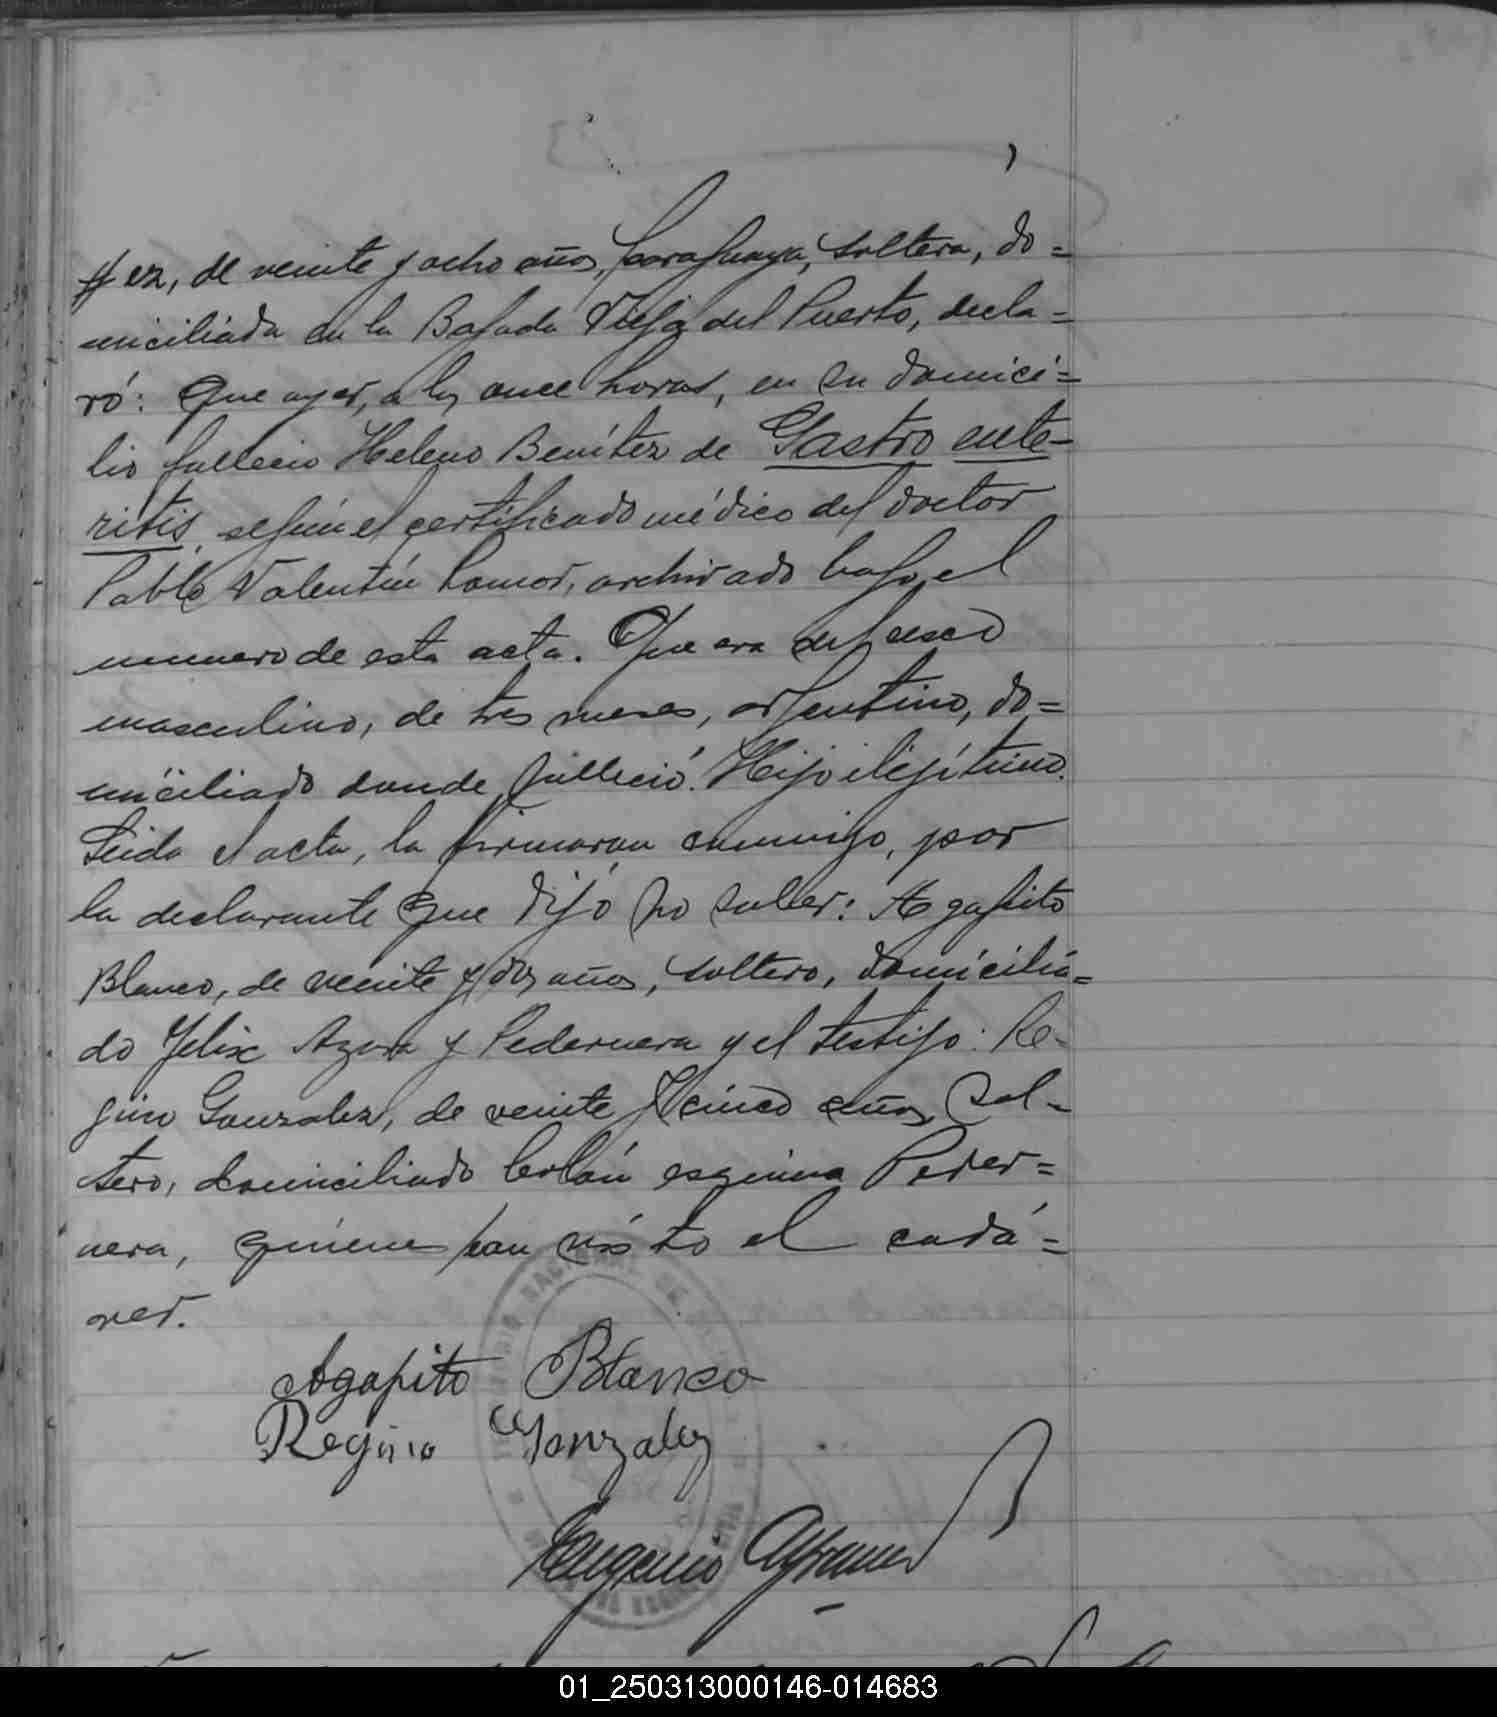 ez, de veinte y ocho años, paraguaya, soltera, do=
miciliada en la Bajada Vieja del Puerto, decla=
ró: Que ayer, a las once horas, en su domici=
lio falleció Heleno Benítez de Gastro ente-
ritis, según el certificado médico del doctor
Pablo Valentín, archivado bajo el
numero de esta acta. Que era del sexo
masculino, de tres meses, argentino, do=
miciliado donde falleció. Hijo ilejítimo.
Leida el acta, la firmaran conmigo, por
la declarante que dijó no saber: Agapito
Blanco, de veinte y dos años, soltero, domicilia=
do Felix Azara y Pedernera y el testigo: Re-
gino Gonzalez, de veinte y cinco años, sol-
tero, domiciliado Colón esquina Peder=
nera, quiene han visto el cadá=
ver.
Agapito Blanco
Regino Gonzalez
Eugenio
01_250313000146-014683